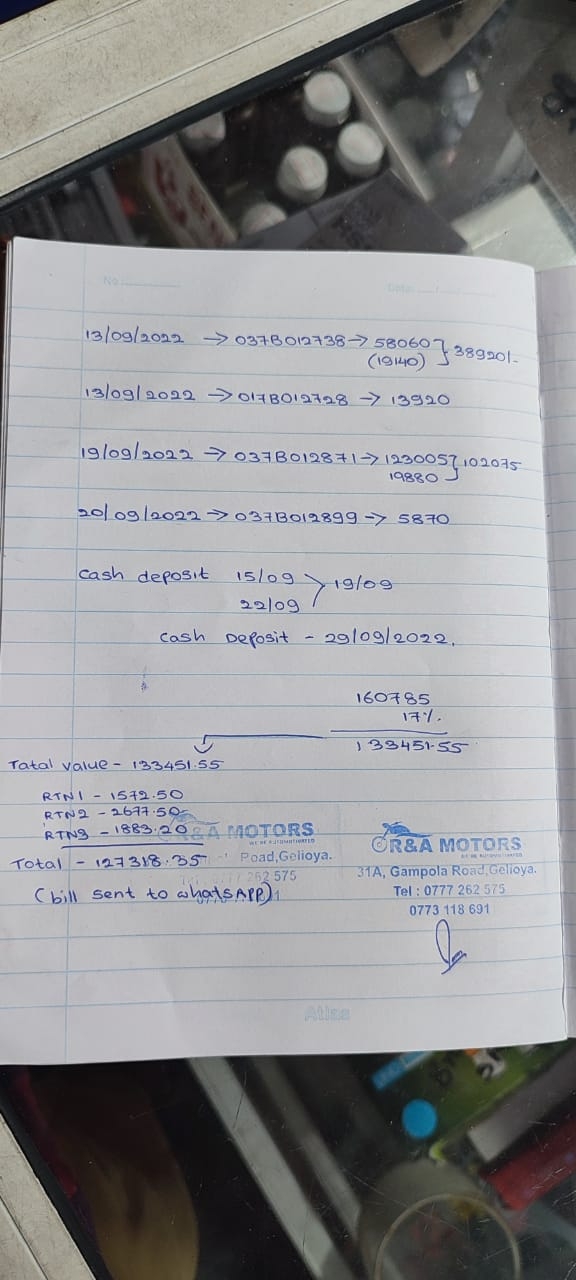 No: Date:
13/09/2022 → 037B012738 → 58060 } 38920/-
(19140)
13/09/2022 → 017B012728 → 13920
19/09/2022 → 037B012871 → 123005 } 102075
19880
20/09/2022 → 037B012899 → 5870
Cash deposit 15/09 > 19/09
22/09
Cash Deposit - 29/09/2022.
160785
17%
133451.55
Tatal value - 133451.55
RTN1 - 1572.50
RTN2 - 2677.50
RTN3 - 1883.20
Total - 127318.35
(bill sent to whatsAPP)
R&A MOTORS
Road,Gelioya.
262 575
R&A MOTORS
WE BE AUTOMOTIVATED
31A, Gampola Road,Gelioya.
Tel : 0777 262 575
0773 118 691
Atlas